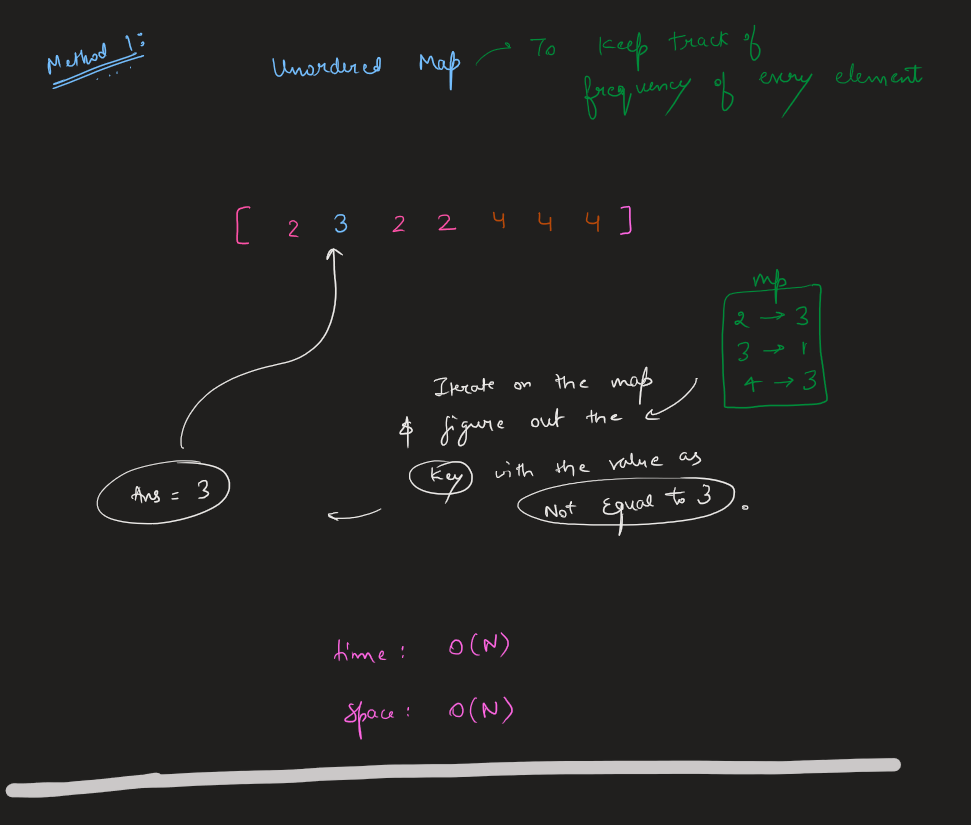 Method 1:
Unordered Map → To keep track of
frequency of every element
[ 2 3 2 2 4 4 4 ]
mp
2 → 3
3 → 1
4 → 3
Iterate on the map
& figure out the
key with the value as
Not Equal to 3.
Ans = 3
time: O(N)
Space: O(N)